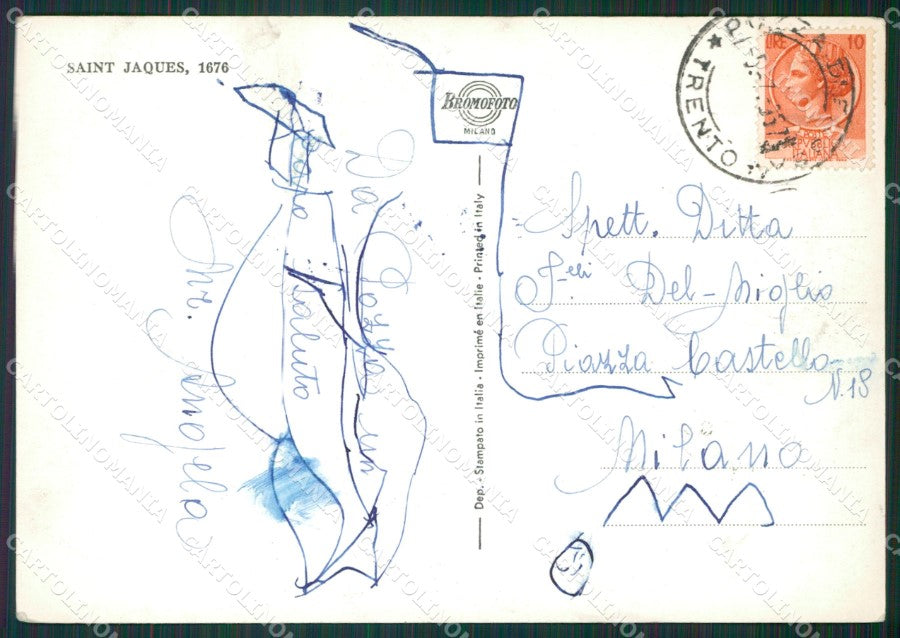 SAINT JAQUES, 1676
Da Pozza un
saluto
Arr. Angela
BROMOFOTO
MILANO
Dep. - Stampato in Italia - Imprimé en Italie - Printed in Italy
LIRE 10
TRENTO
Spett. Ditta
F.lli Del-Miglio
Piazza Castello
N. 18
Milano
CARTOLINOMANIA